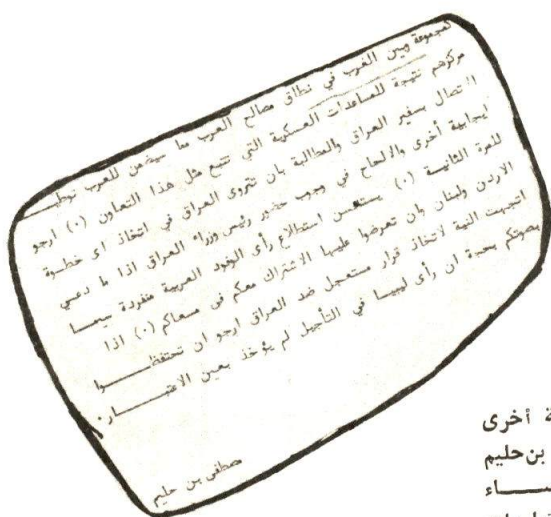 لمجموعة وبين الغرب في نطاق مصالح العرب ما سيضمن للعرب توطيـــد
مركزهم نتيجة للمساعدات العسكرية التي تتبع مثل هذا التعاون (٠) ارجو
الاتصال بسفير العراق والمطالبة بان تتروى العراق في اتخاذ اى خطـوة
ايجابية أخرى والالحاح في وجوب حضور رئيس وزراء العراق اذا ما دعـي
للمرة الثانيـة (٠) يستحسن استطلاع رأى الوفود العربية منفردة سيمـــا
الاردن ولبنان وان تعرضوا عليها الاشتراك معكم في مسعاكم (٠) اذا
اتجهت النية لاتخاذ قرار مستعجل ضد العراق ارجو ان تحتفظـــــوا
بصوتكم بحجة ان رأى ليبيا في التأجيل لم يؤخذ بعين الاعتبــــار٠
مصطفى بن حليم
ة أخرى
بن حليم
ـــاء